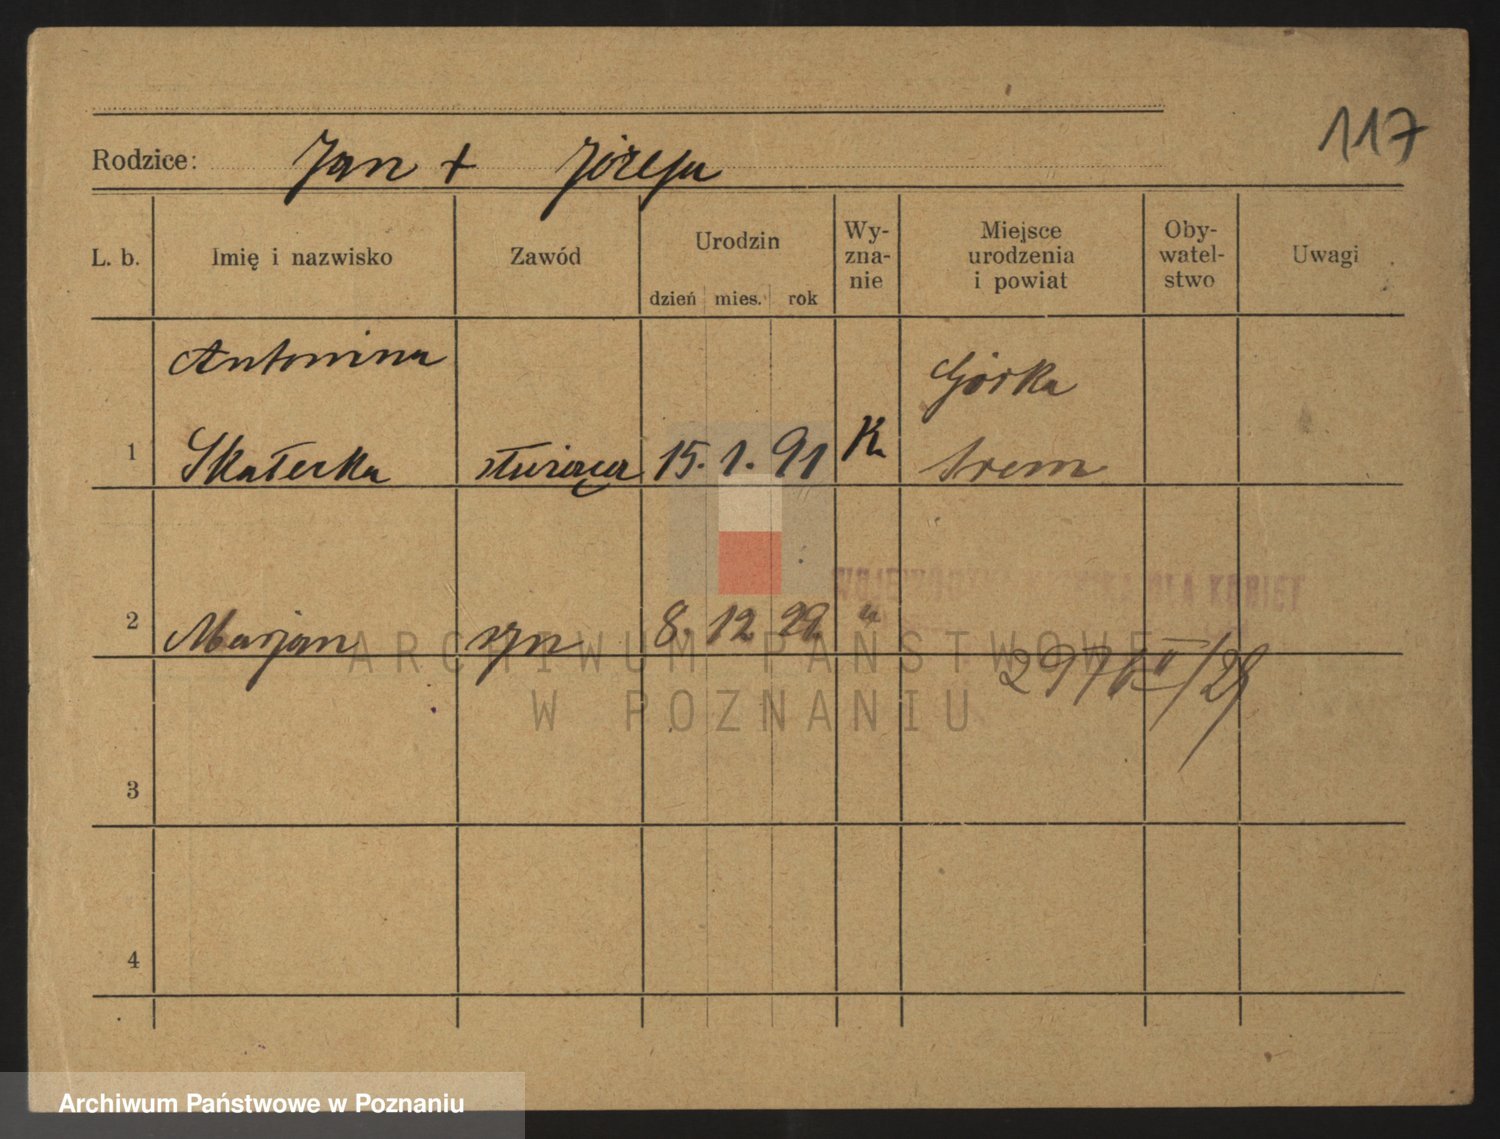 117
Rodzice: Jan + Józefa
L. b.
Imię i nazwisko
Zawód
Urodzin
dzień mies. rok
Wy-
zna-
nie
Miejsce
urodzenia
i powiat
Oby-
watel-
stwo
Uwagi
Antonina
Górka
1 Skałecka służąca 15. 1. 91 K Śrem
WOJEWÓDZKA KLINIKA DLA KOBIET
2 Marjan syn 8. 12 22 "
ARCHIWUM PAŃSTWOWE
W POZNANIU
3
4
Archiwum Państwowe w Poznaniu